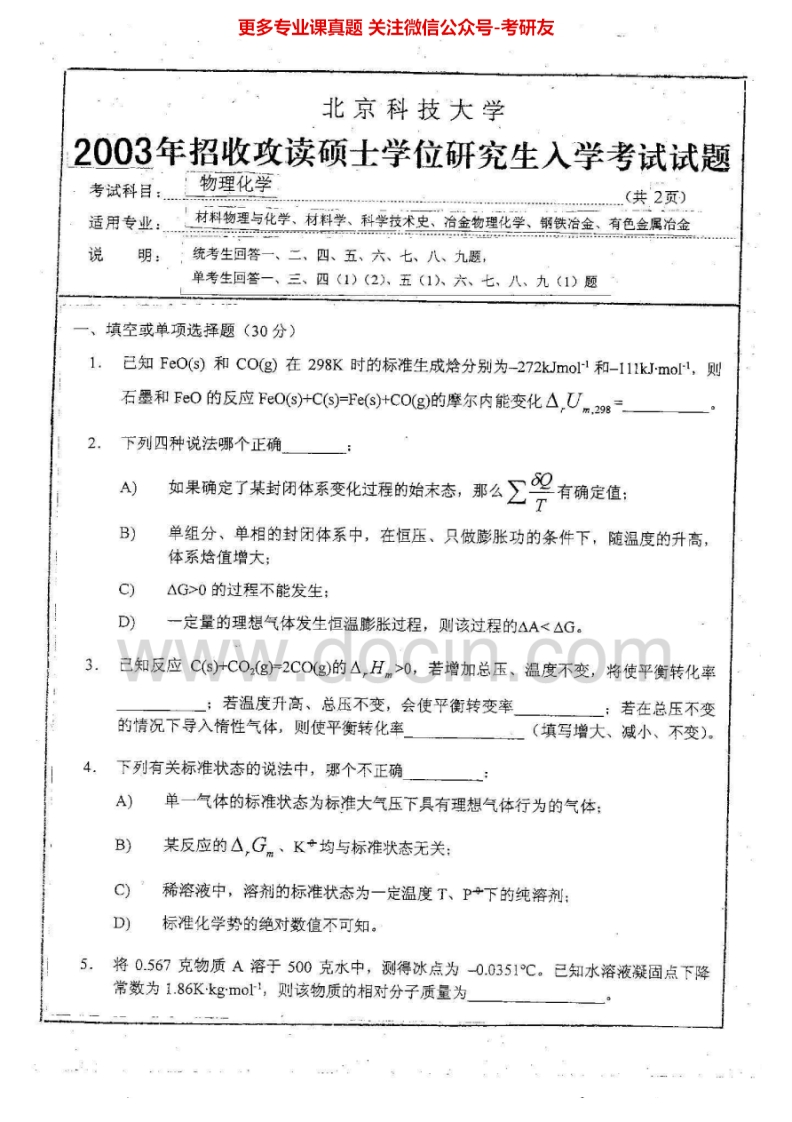 更多专业课真题 关注微信公众号-考研友
北京科技大学
2003年招收攻读硕士学位研究生入学考试试题
考试科目: 物理化学 (共 2页)
适用专业: 材料物理与化学、材料学、科学技术史、冶金物理化学、钢铁冶金、有色金属冶金
说 明: 统考生回答一、二、四、五、六、七、八、九题,
单考生回答一、三、四(1)(2)、五(1)、六、七、八、九(1)题
一、填空或单项选择题(30 分)
1. 已知 FeO(s) 和 CO(g) 在 298K 时的标准生成焓分别为–272kJmol⁻¹ 和–111kJ·mol⁻¹,则
石墨和 FeO 的反应 FeO(s)+C(s)=Fe(s)+CO(g)的摩尔内能变化 ΔᵣU m,298 =__________。
2. 下列四种说法哪个正确_______;
A) 如果确定了某封闭体系变化过程的始末态,那么 ∑ δQ/T 有确定值;
B) 单组分、单相的封闭体系中,在恒压、只做膨胀功的条件下,随温度的升高,
体系焓值增大;
C) ΔG>0 的过程不能发生;
D) 一定量的理想气体发生恒温膨胀过程,则该过程的ΔA< ΔG。
www.docin.com
3. 已知反应 C(s)+CO₂(g)=2CO(g)的 ΔᵣHₘ >0,若增加总压、温度不变,将使平衡转化率
__________;若温度升高、总压不变,会使平衡转变率__________;若在总压不变
的情况下导入惰性气体,则使平衡转化率_____________(填写增大、减小、不变)。
4. 下列有关标准状态的说法中,哪个不正确_________;
A) 单一气体的标准状态为标准大气压下具有理想气体行为的气体;
B) 某反应的 ΔᵣGₘ 、K⊖均与标准状态无关;
C) 稀溶液中,溶剂的标准状态为一定温度 T、P⊖下的纯溶剂;
D) 标准化学势的绝对数值不可知。
5. 将 0.567 克物质 A 溶于 500 克水中,测得冰点为 –0.0351℃。已知水溶液凝固点下降
常数为 1.86K·kg·mol⁻¹,则该物质的相对分子质量为_______________。